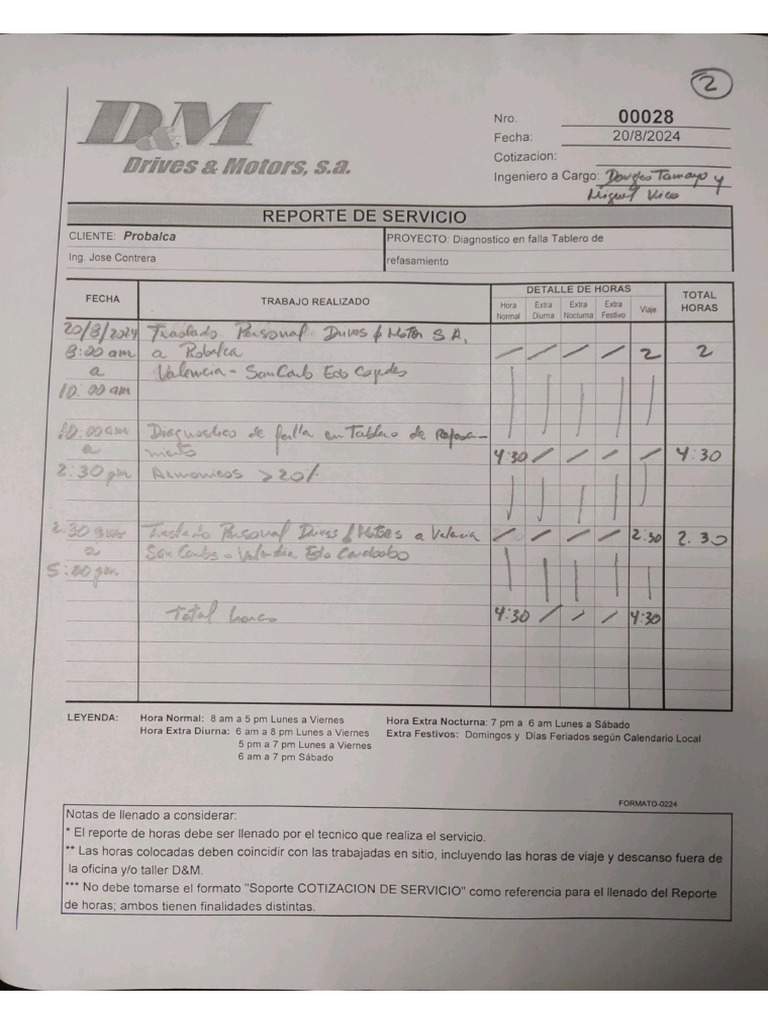 2
D&M
Drives & Motors, s.a.
Nro. 00028
Fecha: 20/8/2024
Cotizacion:
Ingeniero a Cargo: Douglas Tamayo y
Miguel Vico
REPORTE DE SERVICIO
CLIENTE: Probalca
PROYECTO: Diagnostico en falla Tablero de
Ing. Jose Contrera
refasamiento
FECHA TRABAJO REALIZADO DETALLE DE HORAS TOTAL HORAS
Hora Normal Extra Diurna Extra Nocturna Extra Festivo Viaje
20/8/2024 Traslado Personal Drives / Motor S.A,
8:00 am a Probalca / / / / 2 2
a Valencia - San Carlo Edo Cojedes
10:00 am
10:00 am Diagnostico de falla en Tablero de Refasa-
a miento 4:30 / / / / 4:30
2:30 pm Armonicos >20%
2:30 pm Traslado Personal Drives / Motors a Valencia / / / / 2:30 2.30
a San Carlos - Valencia Edo Carabobo
5:00 pm
Total horas 4:30 / / / 4:30
LEYENDA: Hora Normal: 8 am a 5 pm Lunes a Viernes
Hora Extra Diurna: 6 am a 8 pm Lunes a Viernes
5 pm a 7 pm Lunes a Viernes
6 am a 7 pm Sábado
Hora Extra Nocturna: 7 pm a 6 am Lunes a Sábado
Extra Festivos: Domingos y Días Feriados según Calendario Local
FORMATO-0224
Notas de llenado a considerar:
* El reporte de horas debe ser llenado por el tecnico que realiza el servicio.
** Las horas colocadas deben coincidir con las trabajadas en sitio, incluyendo las horas de viaje y descanso fuera de
la oficina y/o taller D&M.
*** No debe tomarse el formato "Soporte COTIZACION DE SERVICIO" como referencia para el llenado del Reporte
de horas; ambos tienen finalidades distintas.